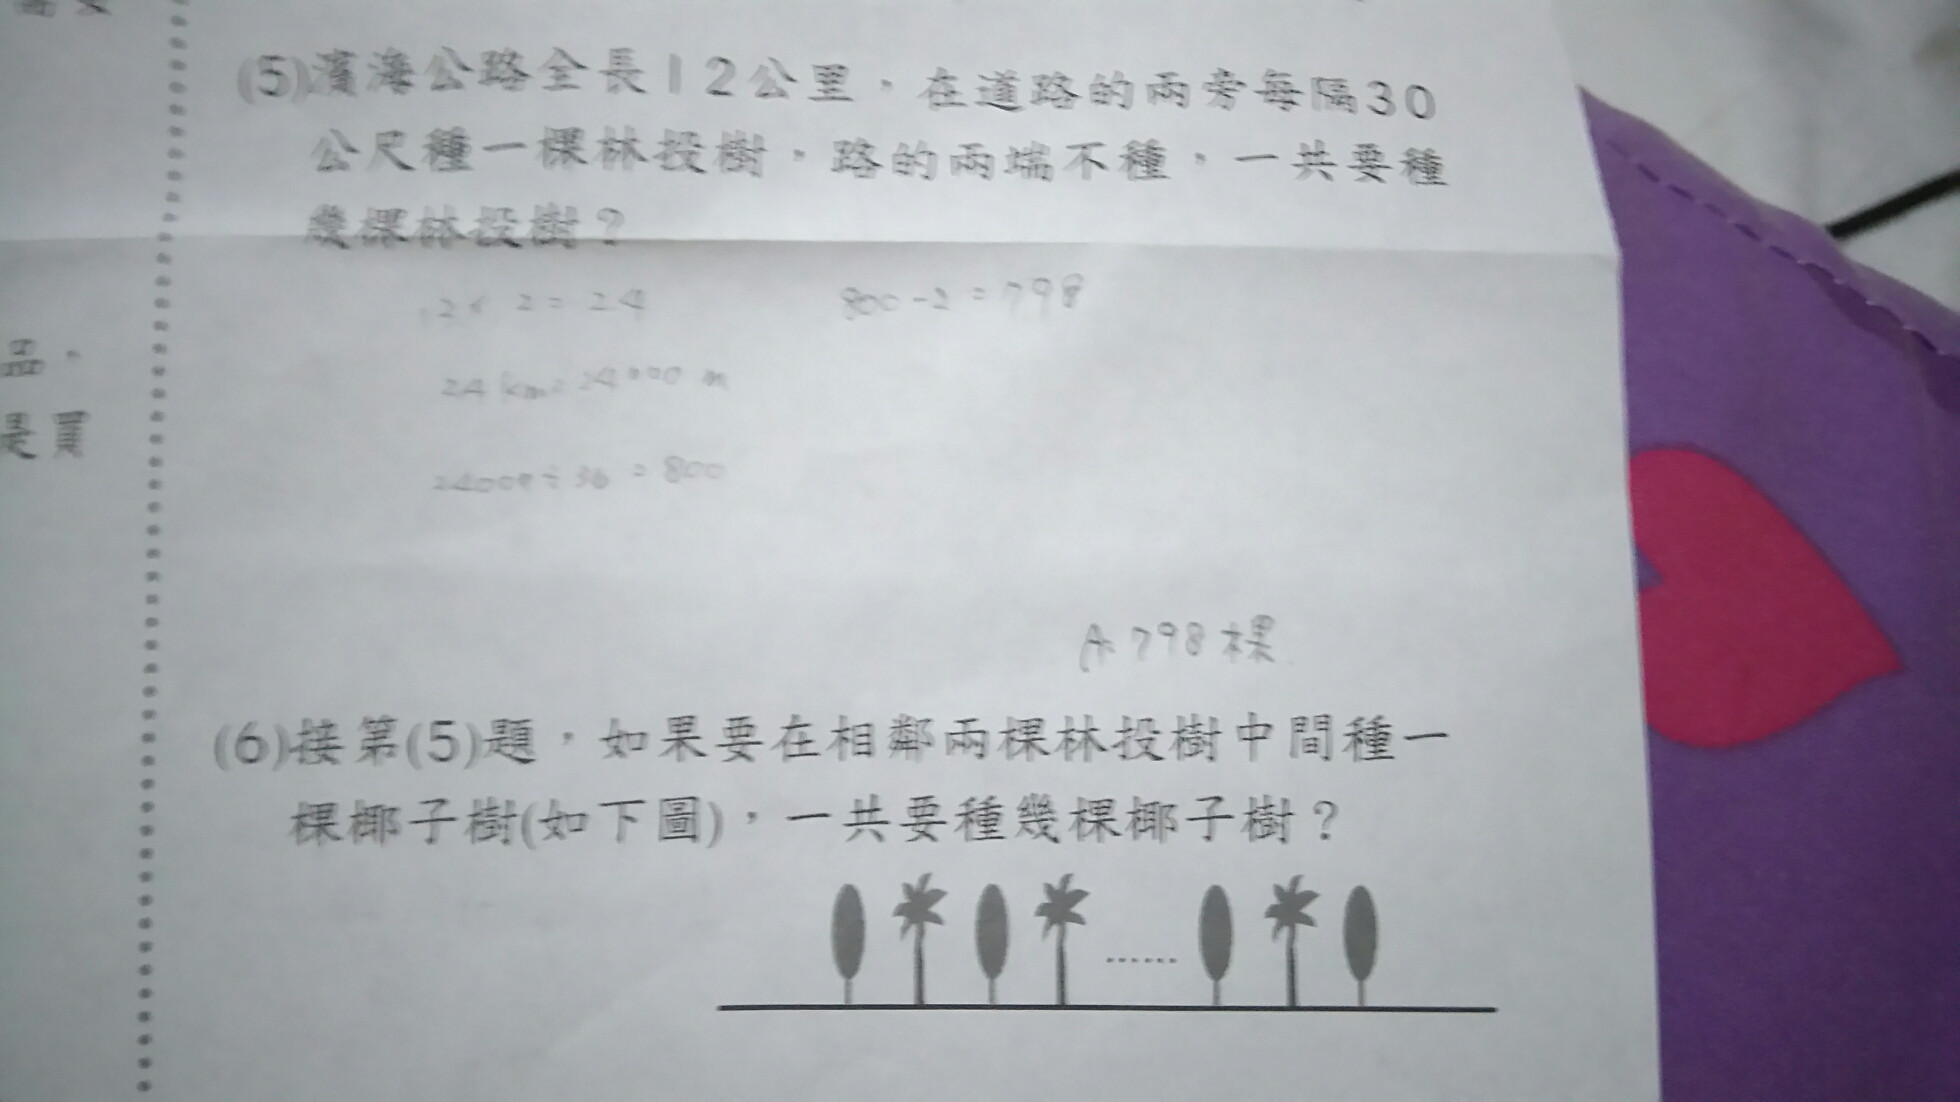 (5)濱海公路全長12公里，在道路的兩旁每隔30
公尺種一棵林投樹，路的兩端不種，一共要種
幾棵林投樹？
12× 2= 24
800-2=798
24 km=24000 m
24000÷30=800
A:798棵
(6)接第(5)題，如果要在相鄰兩棵林投樹中間種一
棵椰子樹(如下圖)，一共要種幾棵椰子樹？
......
品，
是買